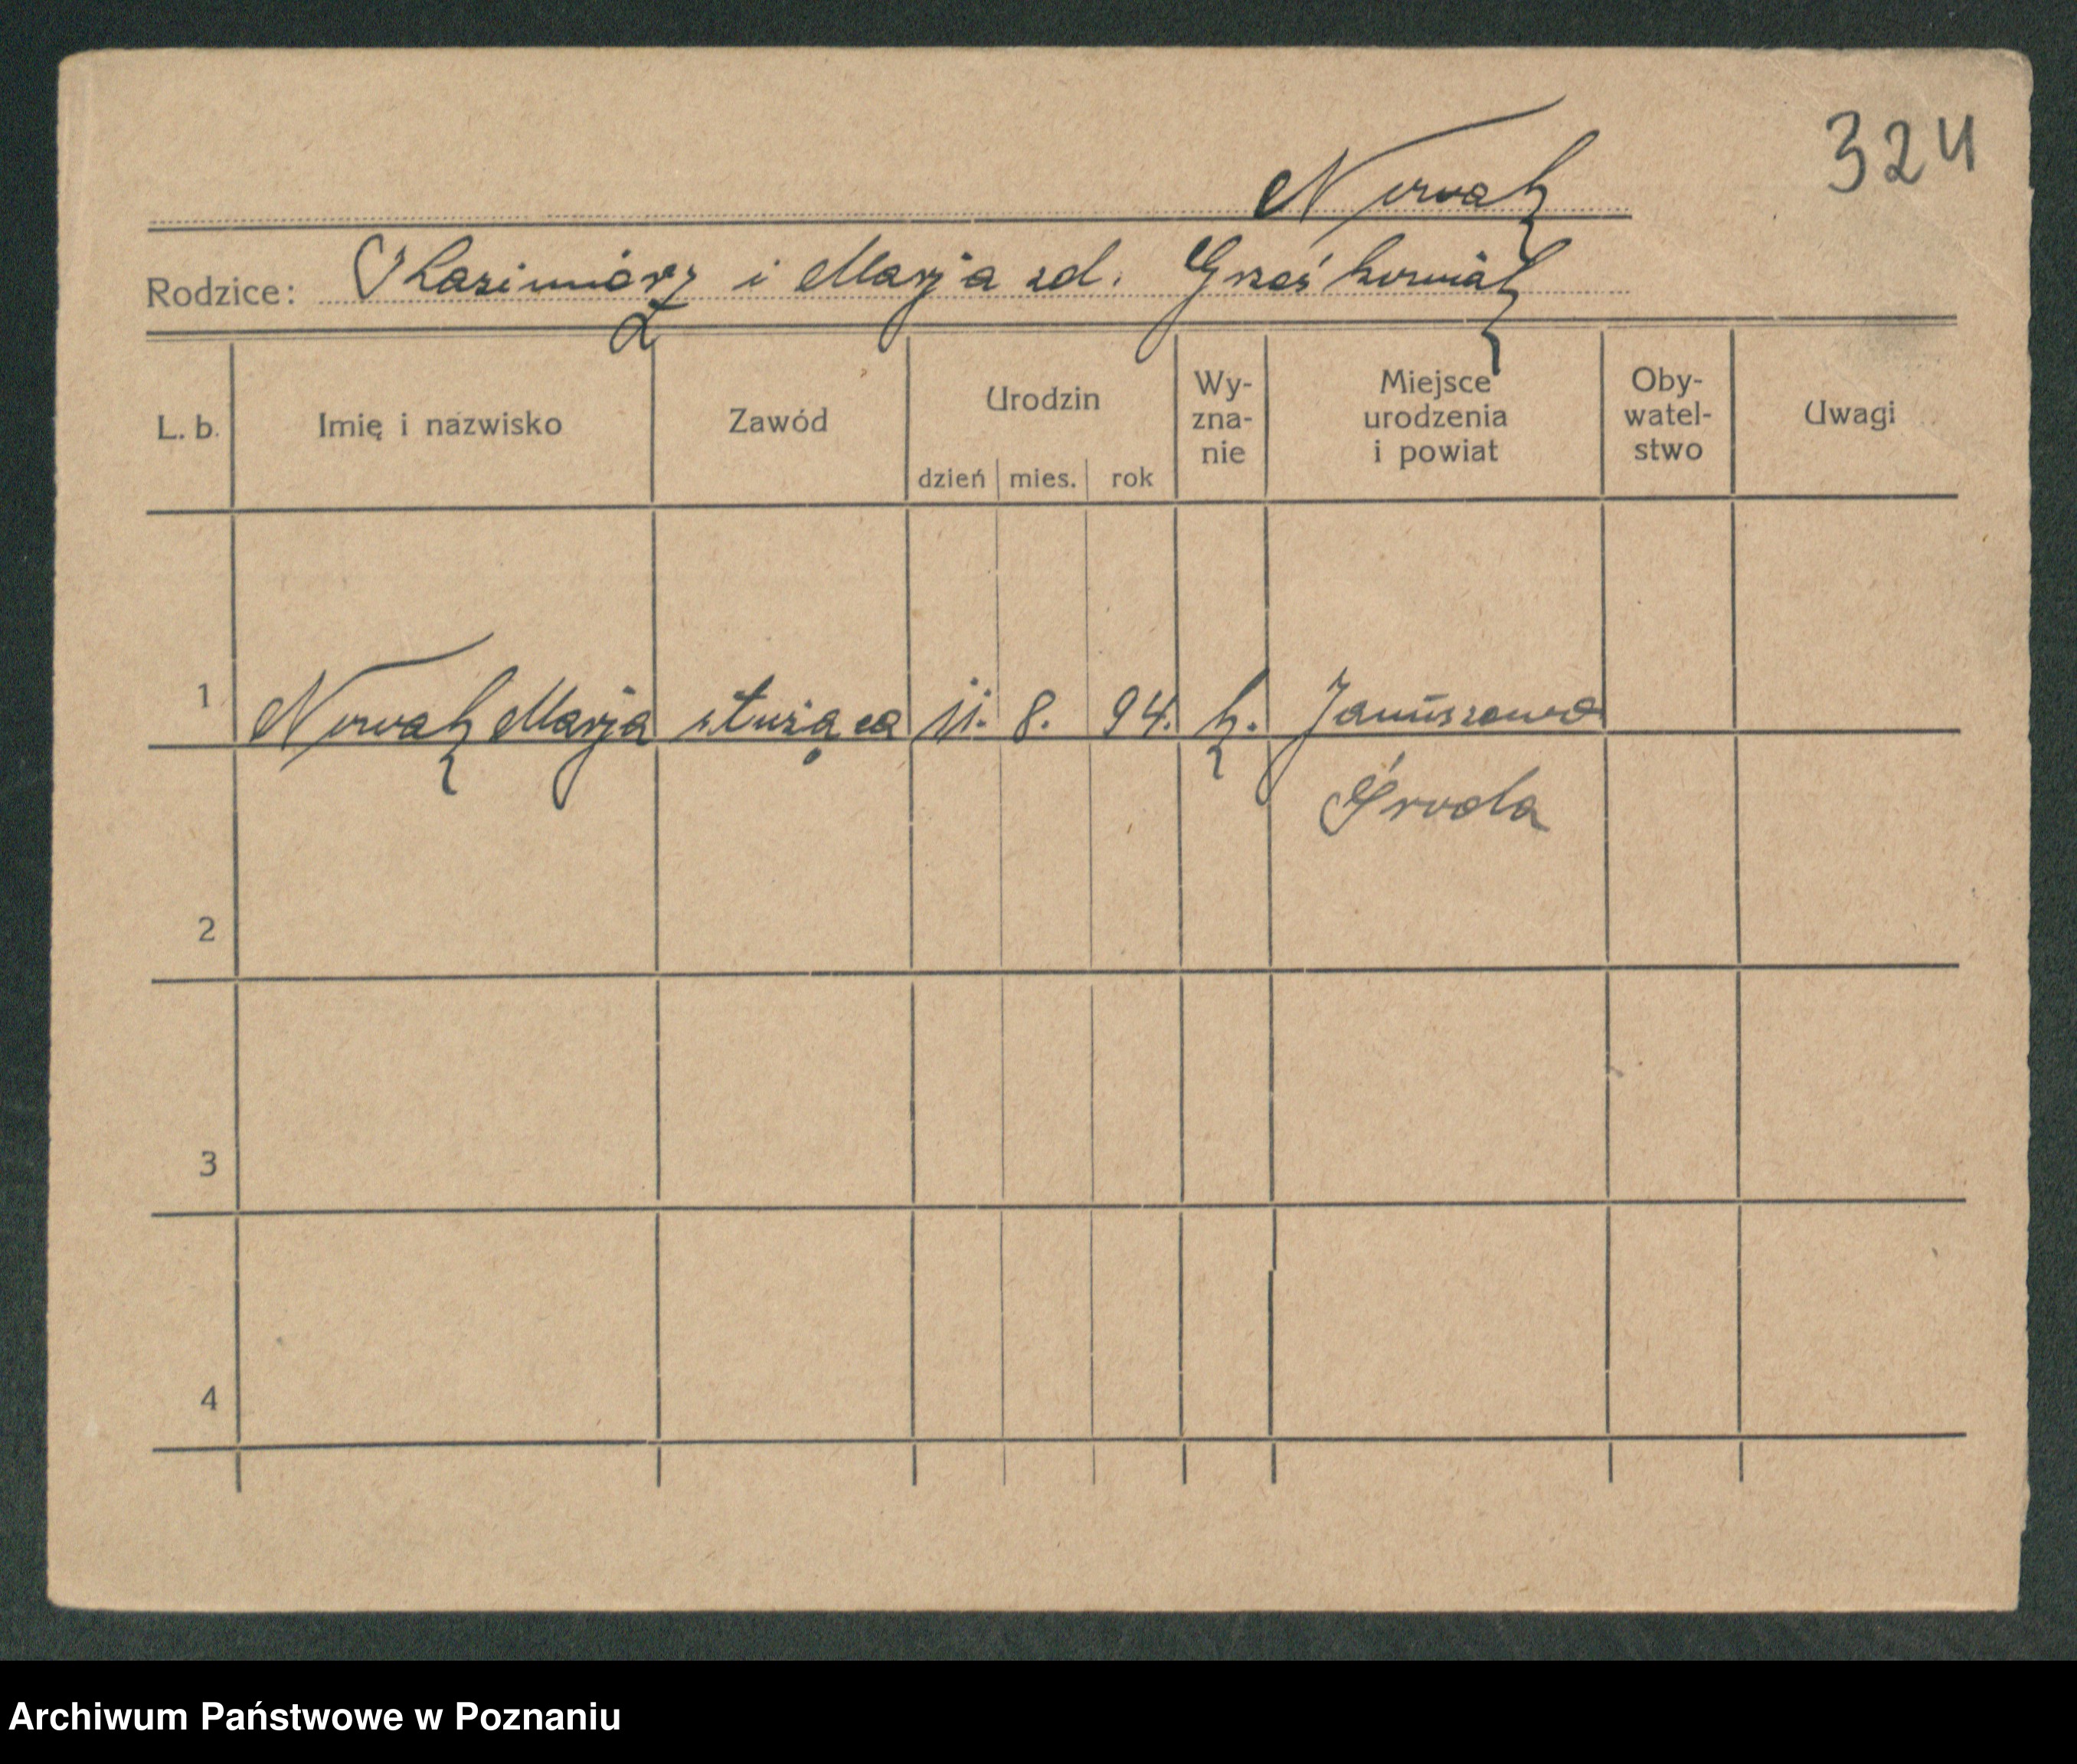 324
Nowak
Rodzice: Kazimierz i Marja zd. Grześkowiak
L. b. Imię i nazwisko Zawód Urodzin dzień mies. rok Wy-zna-nie Miejsce urodzenia i powiat Oby-watel-stwo Uwagi
1 Nowak Marja służąca 11. 8. 94. k. Januszewo
Środa
2
3
4
Archiwum Państwowe w Poznaniu